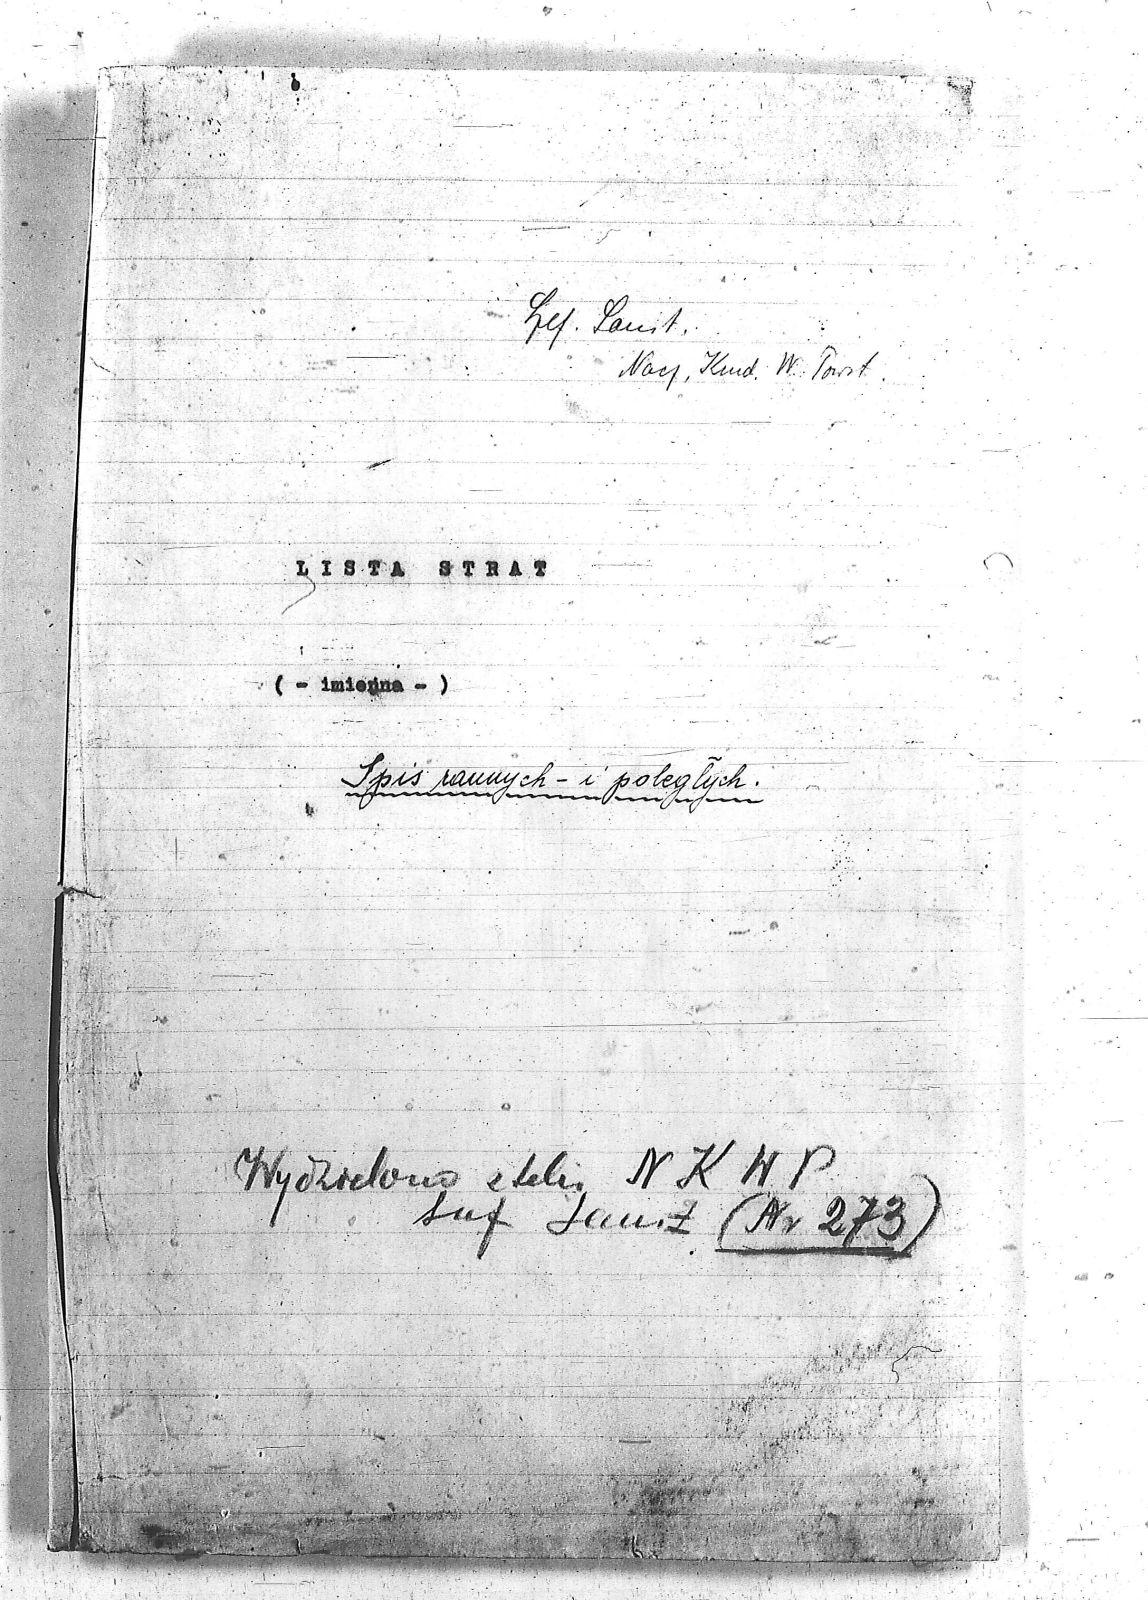 Szef. Sanit.
Nacz. Kmd. W. Powst.
LISTA STRAT
( - imienna - )
Spis rannych - i poległych.
Wydzielono z teki N K W P
Szef Sanit (Nr 273)